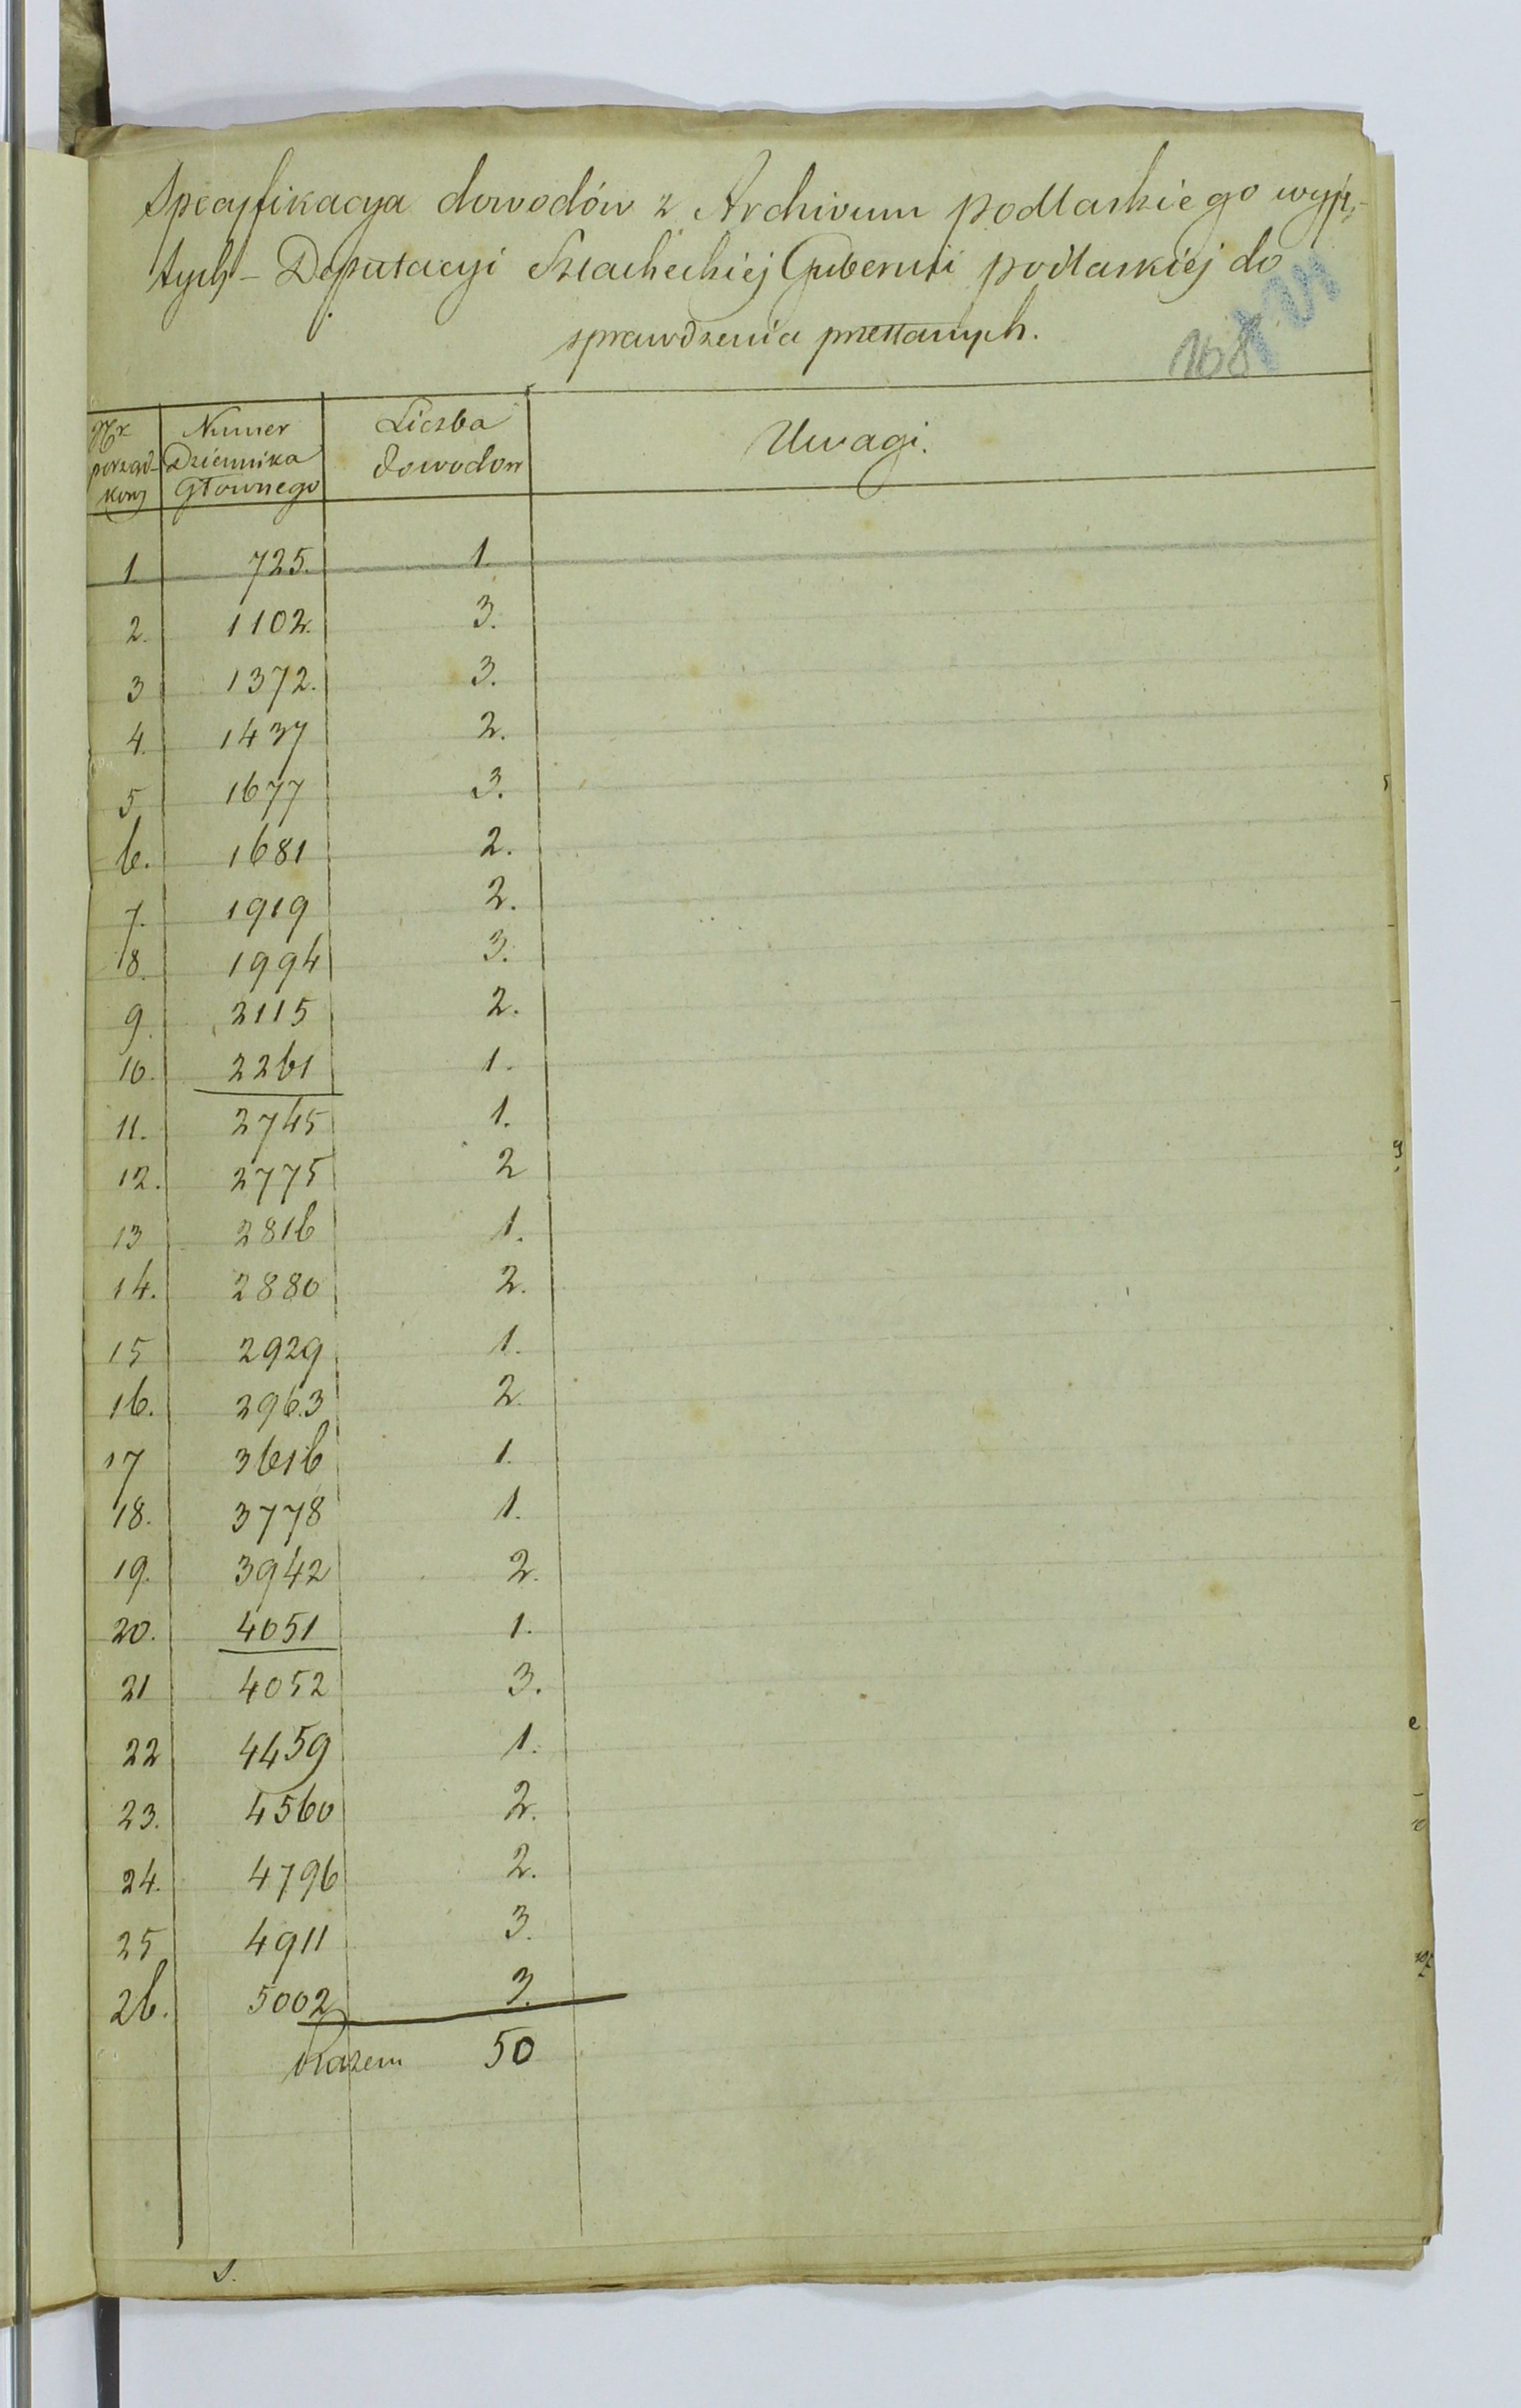 Specyfikacya dowodów z Archivum podlaskiego wyję-
tych – Deputacyi Szlacheckiej Gubernii podlaskiej do
sprawdzenia przesłanych.
168
Nr porząd- kowy | Numer Dziennika Głownego | Liczba dowodow | Uwagi.
1 725. 1.
2. 1102. 3.
3 1372. 3.
4. 1437 2.
5 1677 3.
6. 1681 2.
7. 1919 2.
8. 1994 3.
9. 2115 2.
10. 2261 1.
11. 2745 1.
12. 2775 2
13 2816 1.
14. 2880 2.
15 2929 1.
16. 2963 2.
17 3616 1.
18. 3778 1.
19. 3942 2.
20. 4051 1.
21 4052 3.
22 4459 1.
23. 4560 2.
24. 4796 2.
25 4911 3.
26. 5002 3.
Razem 50